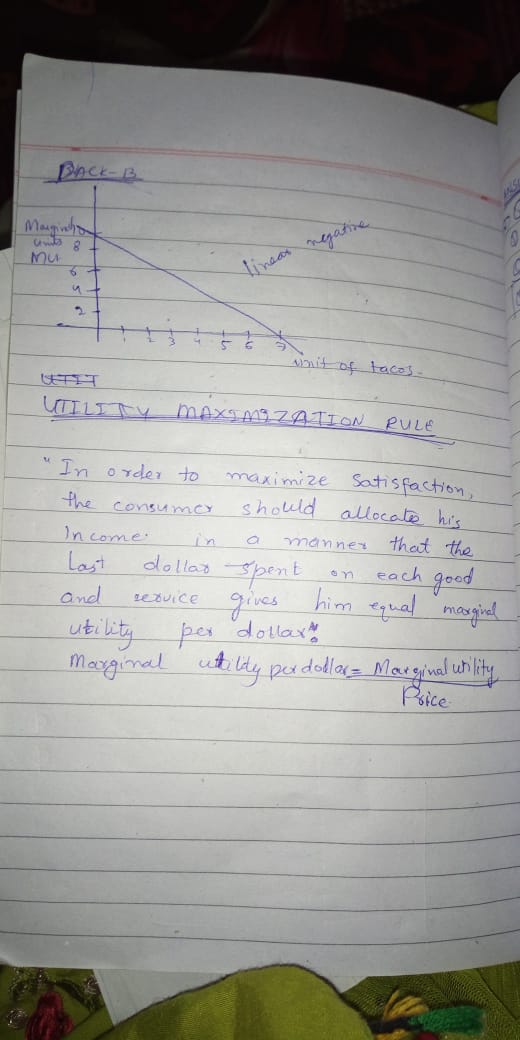 BACK-B
Marginal
units
MU
10
8
6
4
2
1 2 3 4 5 6 7
linear negative
unit of tacos.
UTIT
UTILITY MAXIMIZATION RULE
"In order to maximize satisfaction,
the consumer should allocate his
Income in a manner that the
Last dollar spent on each good
and service gives him equal marginal
utility per dollar."
Marginal utility per dollar = Marginal utility
Price